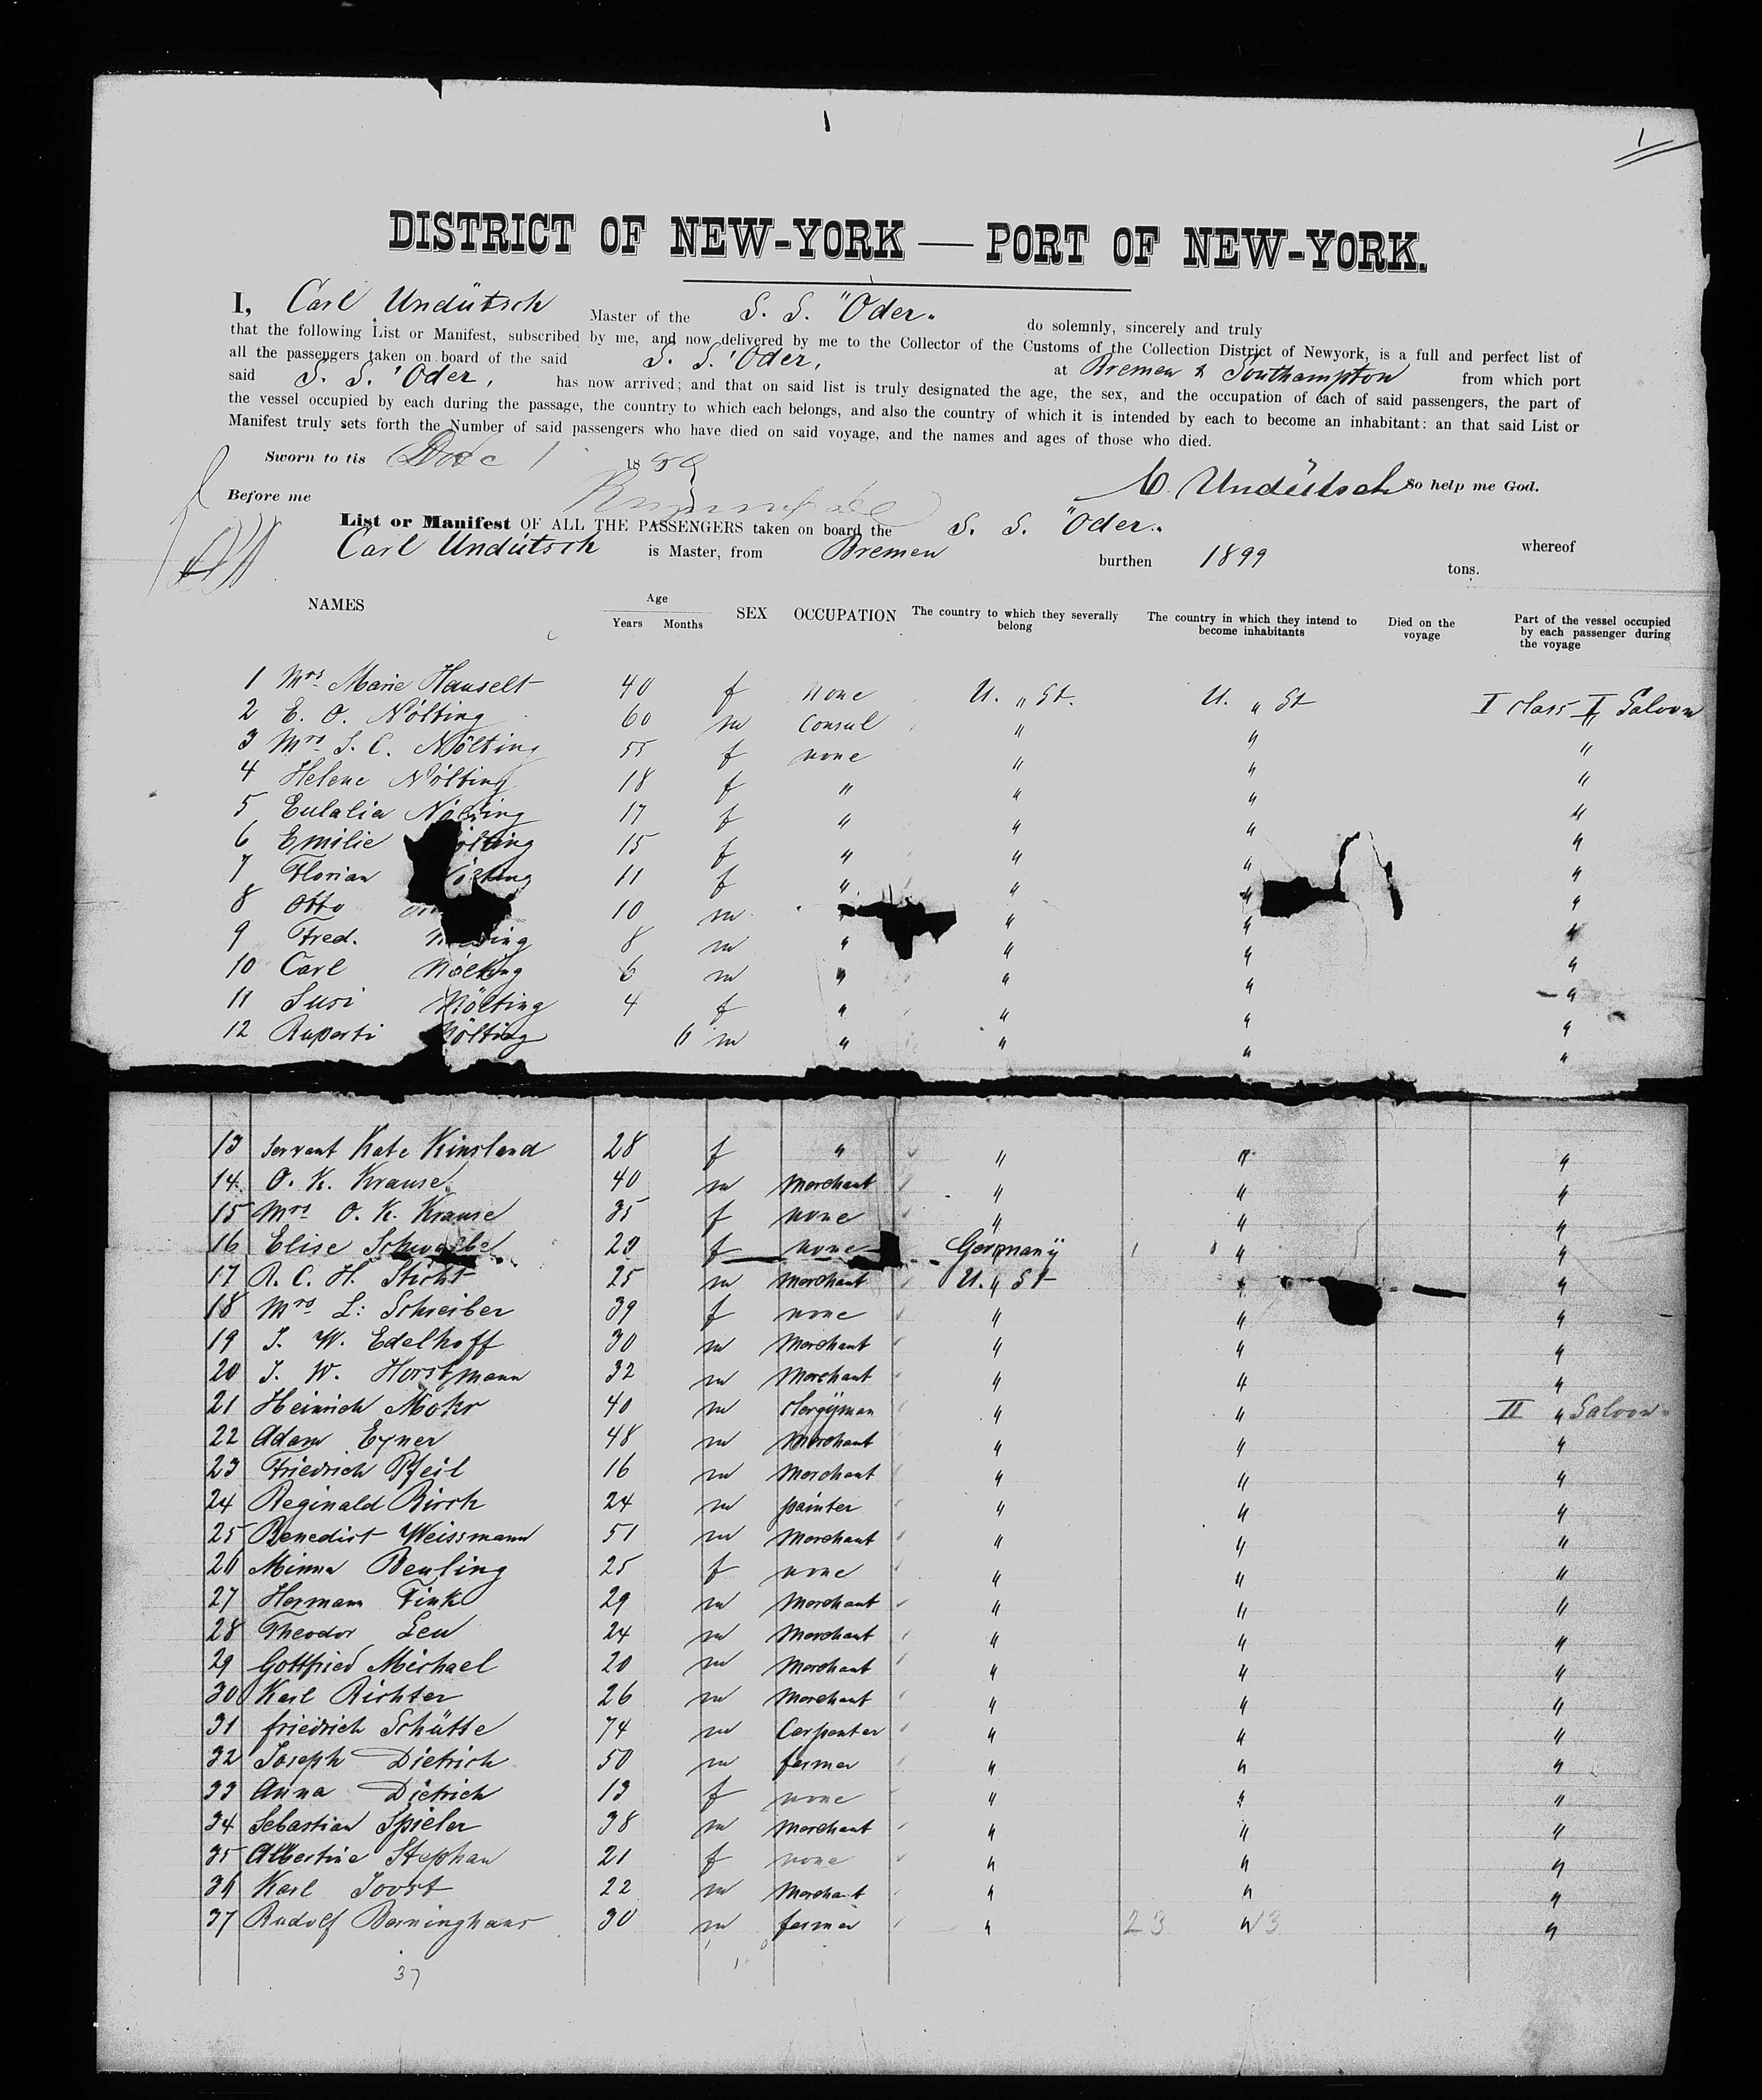 1
DISTRICT OF NEW-YORK — PORT OF NEW-YORK.
I, Carl Undütsch Master of the S. S. "Oder" do solemnly, sincerely and truly
that the following List or Manifest, subscribed by me, and now delivered by me to the Collector of the Customs of the Collection District of Newyork, is a full and perfect list of
all the passengers taken on board of the said S. S. "Oder, at Bremen & Southampton from which port
said S. S. "Oder, has now arrived; and that on said list is truly designated the age, the sex, and the occupation of each of said passengers, the part of
the vessel occupied by each during the passage, the country to which each belongs, and also the country of which it is intended by each to become an inhabitant: an that said List or
Manifest truly sets forth the Number of said passengers who have died on said voyage, and the names and ages of those who died.
Sworn to tis Dec 1 18
C. Undütsch So help me God.
Before me
List or Manifest OF ALL THE PASSENGERS taken on board the S. S. "Oder" whereof
Carl Undütsch is Master, from Bremen burthen 1899 tons.
NAMES Age Years Months SEX OCCUPATION The country to which they severally belong The country in which they intend to become inhabitants Died on the voyage Part of the vessel occupied by each passenger during the voyage
1 Mrs Marie Hauselt 40 f none U. " St. U. " St I class I Saloon
2 E. O. Nölting 60 m Consul " " "
3 Mrs S. C. Nölting 55 f none " " "
4 Helene Nölting 18 f " " " "
5 Eulalia Nölting 17 f " " " "
6 Emilie Nölting 15 f " " " "
7 Florian Nölting 11 f " " " "
8 Otto 10 m " " "
9 Fred. Nölting 8 m " " " "
10 Carl Nölting 6 m " " " "
11 Susi Nölting 4 f " " " "
12 Ruperti Nölting 11 m " " " "
13 Servant Kate Kinsland 28 f " " " "
14. O. K. Krause 40 m Merchant " " "
15 Mrs O. K. Krause 35 f none " " "
16 Elise Schwalbe 29 f none Germany " "
17 R. C. H. Sticht 25 m Merchant U. " St " "
18 Mrs L: Schreiber 39 f none " " "
19 J. W. Edelhoff 30 m Merchant " " "
20 J. W. Horstmann 32 m Merchant " " "
21 Heinrich Mohr 40 m Clergyman " " II " Saloon
22 Adam Eyner 48 m Merchant " " "
23 Friedrich Pfeil 16 m Merchant " " "
24 Reginald Birch 24 m painter " " "
25 Benedict Weissmann 51 m Merchant " " "
26 Minna Beuling 25 f none " " "
27 Hermann Fink 29 m Merchant " " "
28 Theodor Leu 24 m Merchant " " "
29 Gottfried Michael 20 m Merchant " " "
30 Karl Richter 26 m Merchant " " "
31 friedrich Schütte 74 m Carpenter " " "
32 Joseph Dietrich 50 m farmer " " "
33 Anna Dietrich 13 f none " " "
34 Sebastian Spieler 38 m Merchant " " "
35 Albertine Stephan 21 f none " " "
36 Karl Joost 22 m Merchant " " "
37 Rudolf Berninghaus 30 m farmer " 23 " 3 "
37